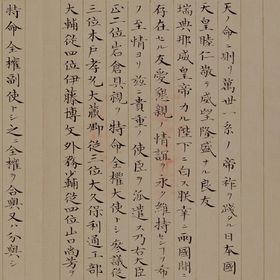 天ノ命ニ則リ萬世一系ノ帝祚ヲ踐タル日本國
天皇睦仁敬テ威望隆盛ナル良友
瑞典那威皇帝カル陛下ニ白ス朕幸ニ兩國間ニ
存在セル友愛懇親ノ情誼ヲ永ク維持センヿヲ希
ノ至情ヨリ玆ニ貴重ノ使臣ヲ海遣ス乃右大臣
正二位岩倉具視ヲ特命全權大使トシ參議從
三位木戸孝允大藏卿從三位大久保利通工部
大輔從四位伊藤博文外務少輔從四位山口尚芳ヲ
特命全權副使トシ之ニ全權ヲ合與又ハ分與シ